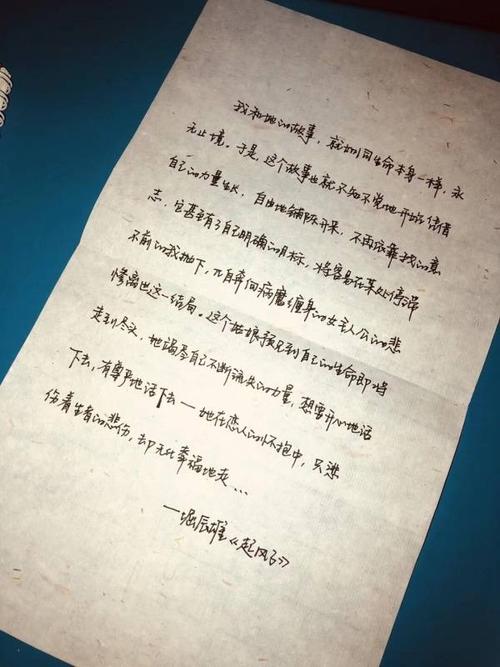 我和她的故事，就如同生命本身一样，永
无止境。于是，这个故事也就不知不觉地开始借着
自己的力量生长，自由地铺陈开来，不再依靠我的意
志，它甚至有了自己明确的目标，将容易在某处停滞
不前的我抛下，兀自奔向病魔缠身的女主人公的悲
惨离世这一结局。这个姑娘预见到自己的生命即将
走到尽头，她竭尽自己不断流失的力量，想要开心地活
下去，有尊严地活下去——她在恋人的怀抱中，只悲
伤着生者的悲伤，却无比幸福地走...
——堀辰雄《起风了》